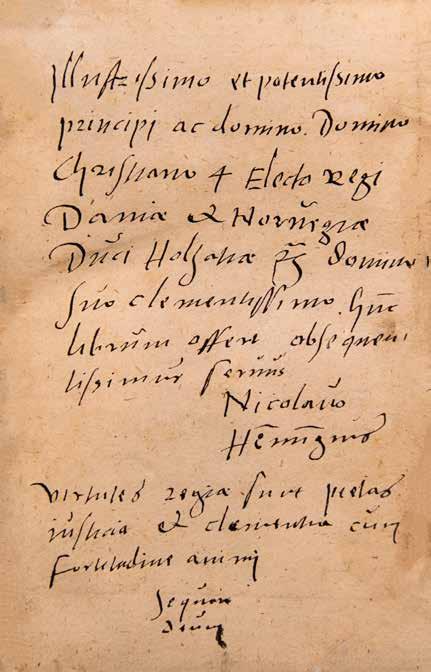 Illustrissimo et potentissimo
principi ac domino. Domino
Christiano 4 Electo Regi
Daniæ & Norvegiæ
Duci Holsatiæ domino
suo clementissimo. hunc
librum offert obsequen
tissimus servus
Nicolaus
Hemingius
virtutes regiæ sunt pietas
iusticia & clementia cum
fortitudine animi
sequere
deum